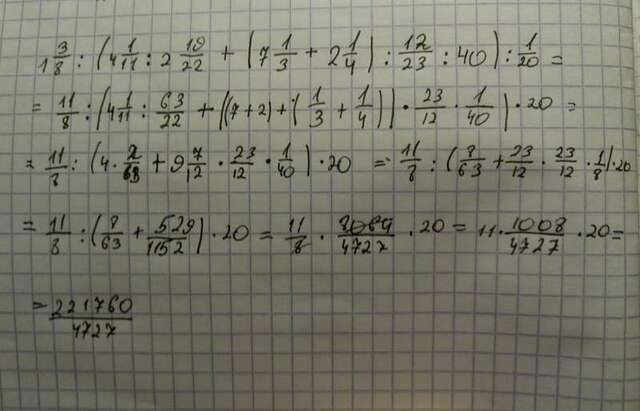 1 3/8 : (4 1/11 : 2 19/22 + (7 1/3 + 2 1/4) : 12/23 : 40) : 1/20 =
= 11/8 : (4 1/11 : 63/22 + ((7+2) + (1/3 + 1/4)) · 23/12 · 1/40) · 20 =
= 11/8 : (4 · 2/63 + 9 7/12 · 23/12 · 1/40) · 20 = 11/8 : (8/63 + 23/12 · 23/12 · 1/8) · 20
= 11/8 : (8/63 + 529/1152) · 20 = 11/8 · 8064/4727 · 20 = 11 · 1008/4727 · 20 =
= 221760/4727